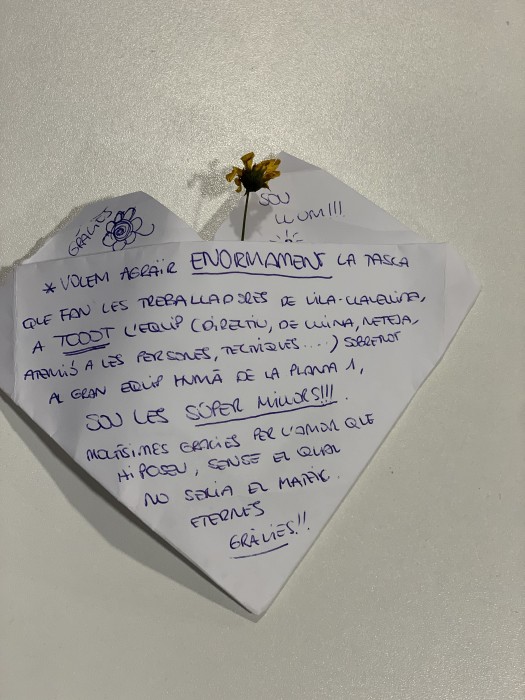 GRÀCIES
SOU
LLUM!!!
* VOLEM AGRAIR ENORMAMENT LA TASCA
QUE FAN LES TREBALLADORES DE LILA-LLAVELINA,
A TOOOT L'EQUIP (DIRECTIU, DE CUINA, NETEJA,
ATENCIÓ A LES PERSONES, TÈCNIQUES....) SOBRETOT
AL GRAN EQUIP HUMÀ DE LA PLANTA 1,
SOU LES SÚPER MILLORS!!!
MOLTÍSSIMES GRÀCIES PER L'AMOR QUE
HI POSEU, SENSE EL QUAL
NO SERIA EL MATEIX.
ETERNES
GRÀCIES!!